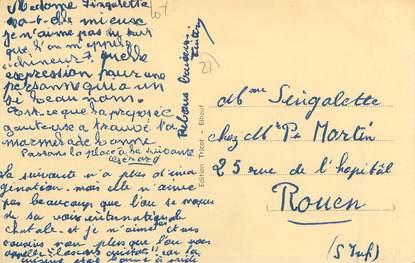 Madame Singalette
va-t-elle mieux
je n'aime pas du tout
que l'on m'appelle
chineur? quelle
expression pour une
personne qui a un
si beau nom.
Est-ce que la préposée
gouteuse a trouvé la
marmelade bonne
Passons la place à la suivante
La suivante n'a plus d'ima
gination. mais elle n'aime
pas beaucoup que l'on se moque
de sa voix internationale
et je n'aime
cousins non plus que l'on vous
appelle
107
27
Edition Tricot - Elbeuf
Mme Singalette
chez Mr Pe Martin
25 rue de l'hopital
Rouen
(S Inf)